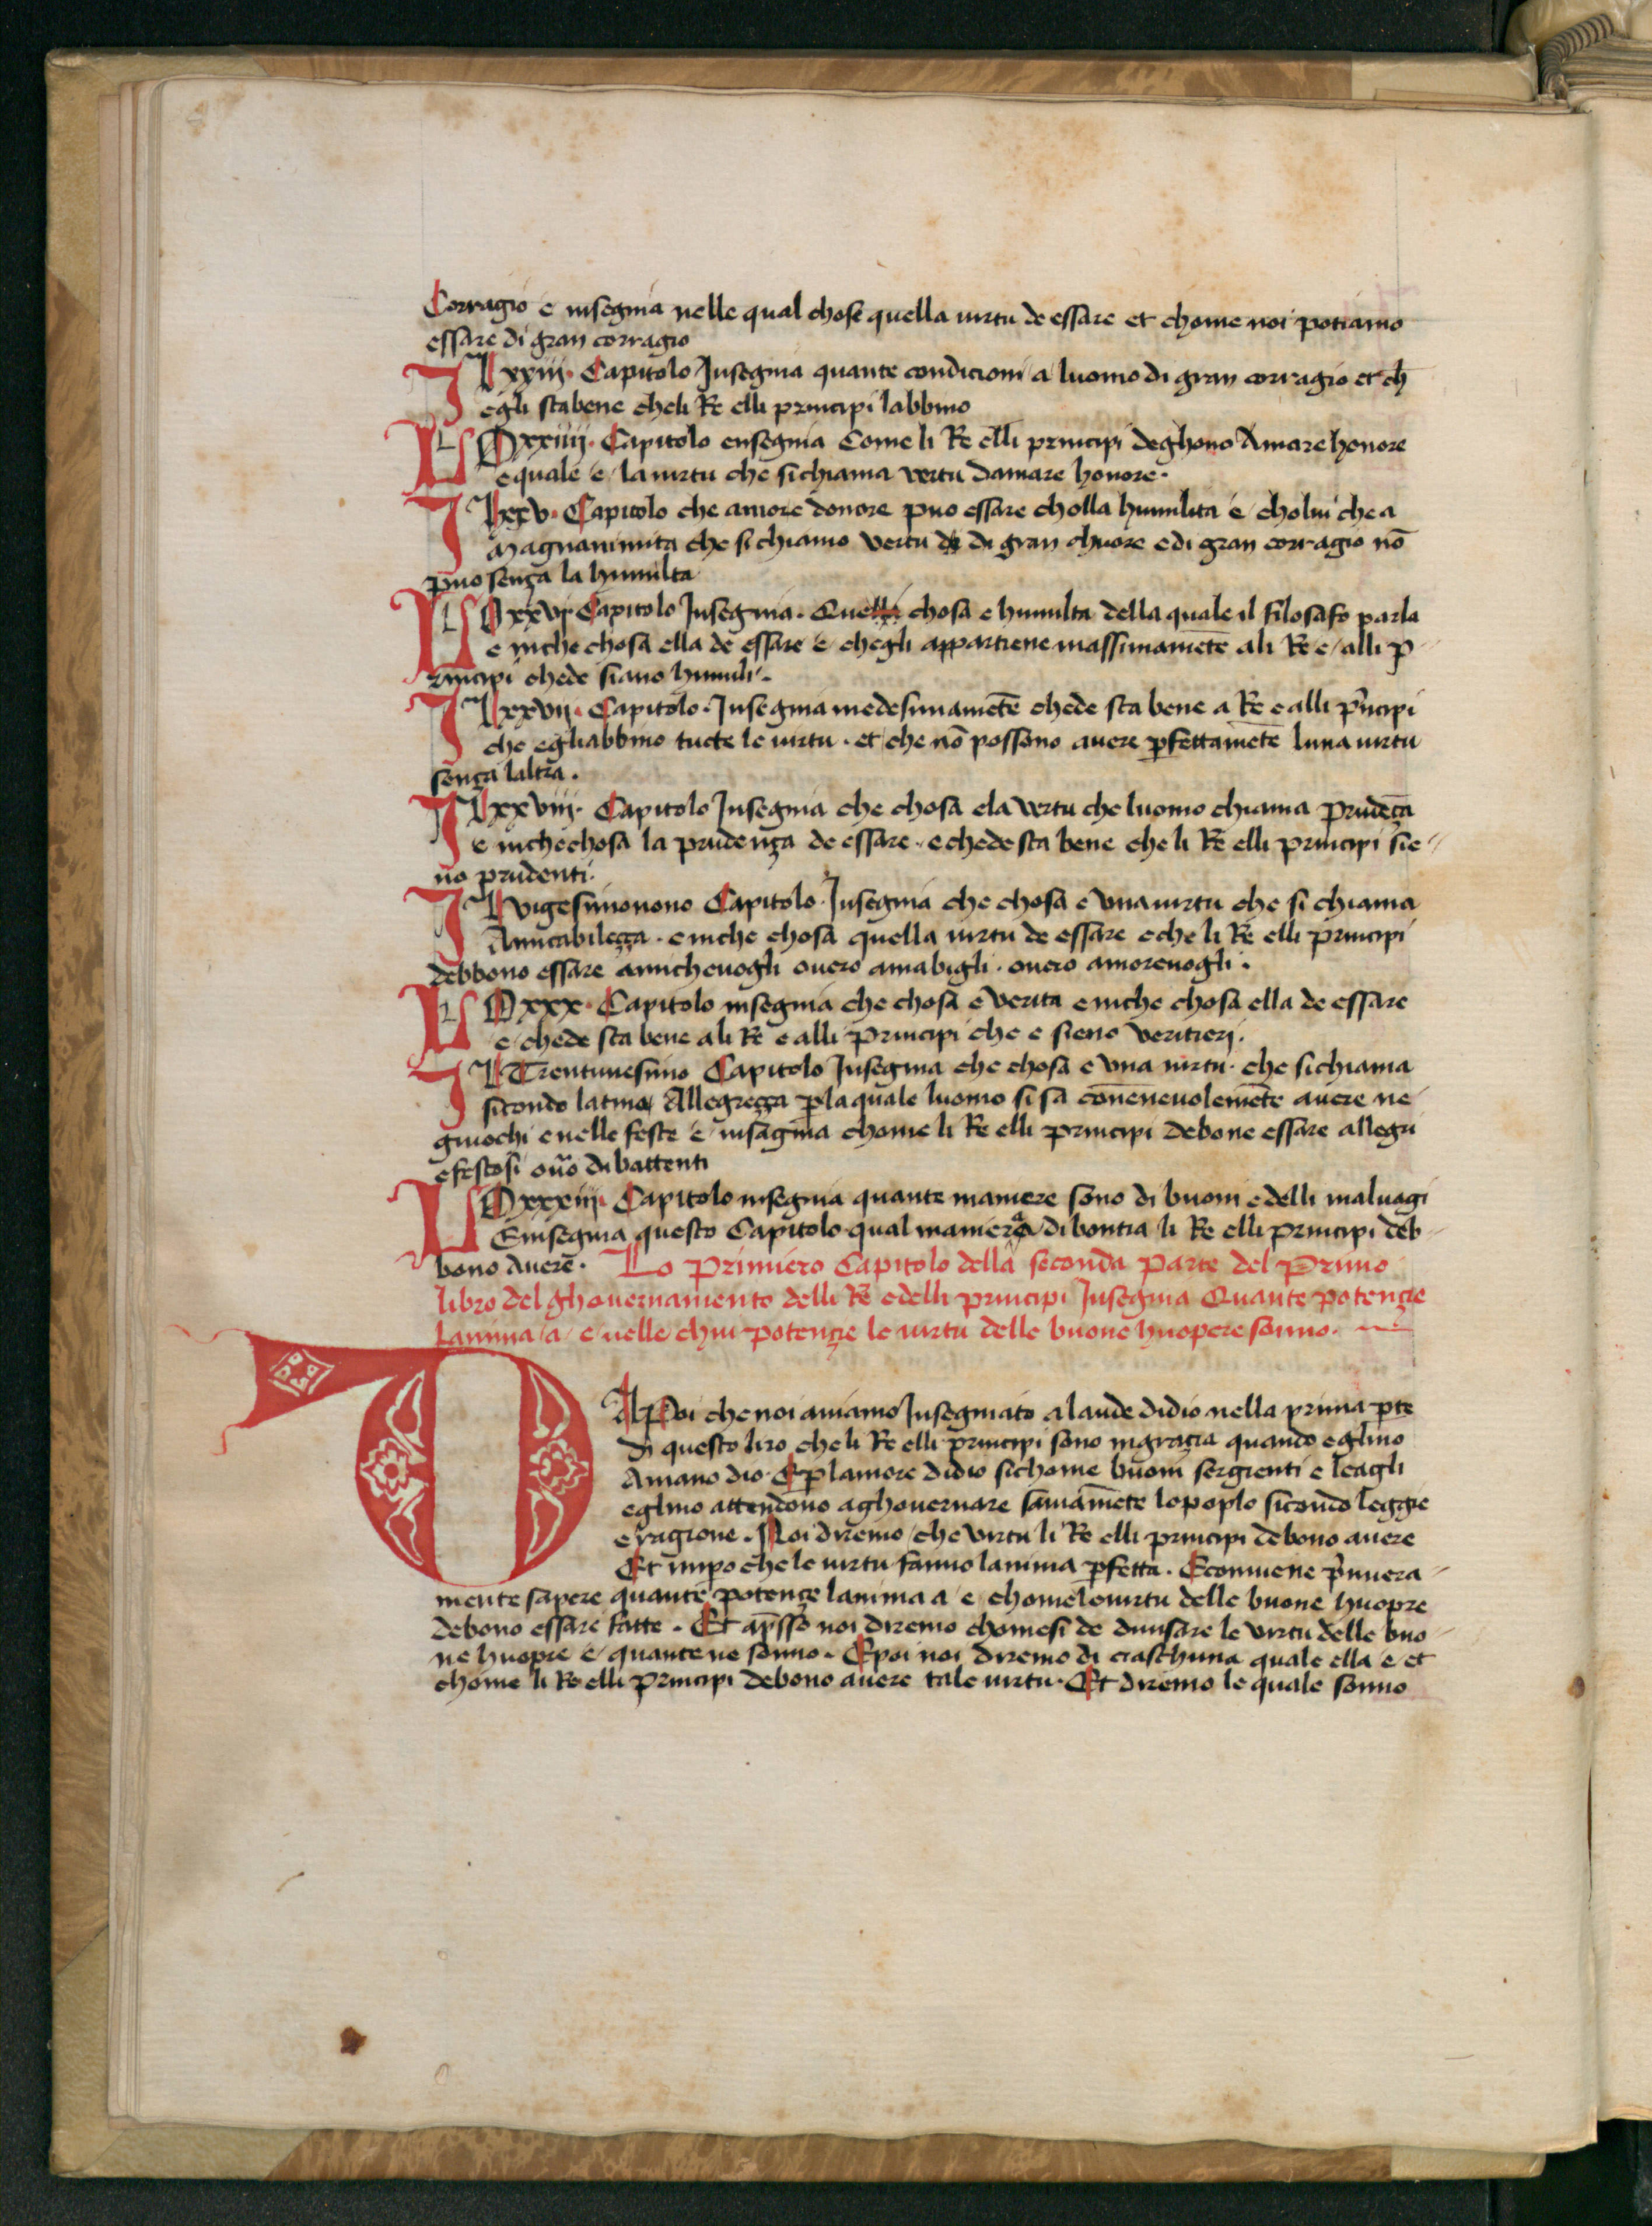 Corragio e insegnia nelle qual chose quella uirtu de essare et chome noi potiamo
essare di gran corragio
IL xxiij. Capitolo Insegnia quante condicioni a luomo di gran corragio et ch̄
egli sta bene cheli Re elli principi labbino
LO xxiiij. Capitolo ensegnia Come li Re elli principi deghono Amare honore
e quale e la uirtu che si chiama vertu damare honore.
IL xxv. Capitolo che amore donore puo essare cholla humilita e cholui che a
Magnanimita che si chiamo vertu di gran chuore e di gran corragio nō
puo sença la humilta
LO xxvj. Capitolo Insegnia. Que chosa e humilta della quale il filosafo parla
e inche chosa ella de essare e chegli appartiene massimamēte ali Re e alli p
rincipi chede siano humili.
IL xxvij. Capitolo. Insegnia medesimamētē chede sta bene a Re e alli p̄ncipi
che egliabbino tucte le uirtu. et che nō possono auere ꝑfettamētē luna uirtu
sença laltra.
IL xxviij. Capitolo Insegnia che chosa ela vertu che luomo chiama prudēça
e inchechosa la prudença de essare. e chede sta bene che li Re elli principi sie
no prudenti.
IL vigesimonono Capitolo. Insegnia che chosa e vna uirtu che si chiama
Amicabileçça. e inche chosa quella uirtu de essare e che li Re elli principi
debbono essare amicheuogli ouero amabigli. ouero amoreuogli.
LO xxx. Capitolo insegnia che chosa e verita e inche chosa ella de essare
e chede sta bene ali Re e alli principi che e sieno veritierj.
IL Trentunesimo Capitolo Insegnia che chosa e vna uirtu. che si chiama
sicondo latino Allegreçça ꝑla quale luomo si sa conēneuolemētē auere ne
giuochi e nelle feste e insagnia chome li Re elli principi debone essare allegri
e festosi oūo dibattenti
LO xxxiij. Capitolo insegnia quante maniere sono di buoni e delli maluagi
E insegnia questo Capitolo qual maniera di bontia li Re elli principi deb
bono auere. Lo Primiero Capitolo della seconda parte del Primo
libro del ghouernamento delli Re e delli principi Insegnia Quante potençie
Lanima a e nelle chui potençie le uirtu delle buone huopere sonno.
DA Poi che noi auiamo Insegniato a laude didio nella prima ꝑte
di questo liro che li Re elli principi sono ingraçia quando eglino
Amano dio. E ꝑ lamore didio sichome buoni sergienti e leagli
eglino attendono aghouernare sauiamēte lo poplo sicondo leggie
e ragione. Noi diremo che virtu li Re elli principi debono auere
Et impo che le uirtu fanno lanima ꝑfetta. E conuiene p̄miera
mente sapere quante potençe lanima a e chome le uirtu delle buone huopre
debono essare fatte. Et ap̄sso noi diremo chomesi de diuisare le virtu delle buo
ne huopre e quante ne sonno. E poi noi diremo di ciaschuna quale ella e et
chome li Re elli principi debono auere tale uirtu. Et diremo le quale sonno